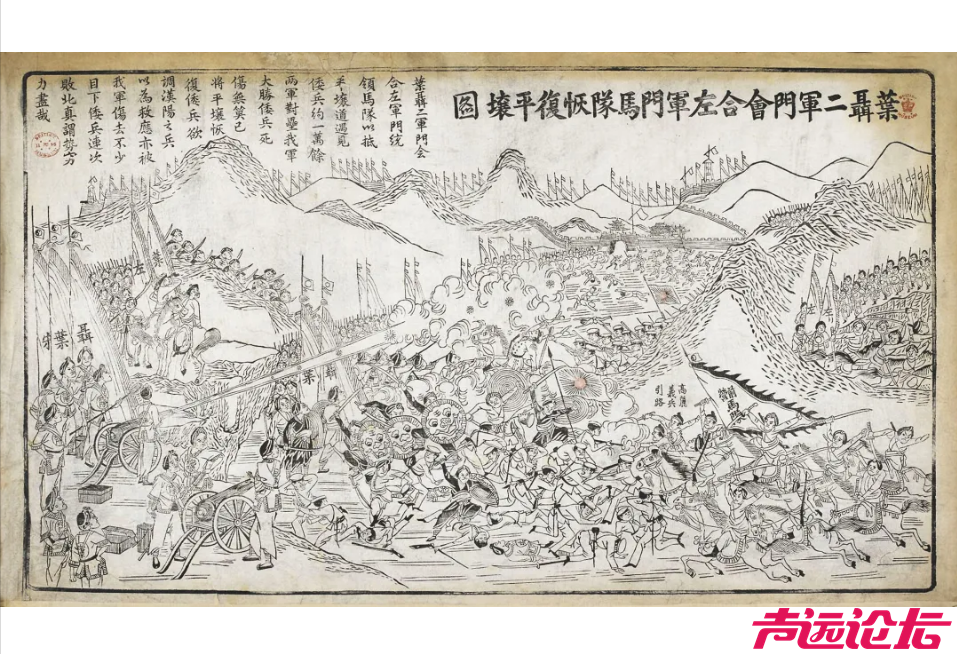 葉聶二軍門會合左軍門馬隊恢復平壤圖
葉聶二軍門會
合左軍門統
領馬隊以抵
平壤道遇見
倭兵約二萬餘
兩軍對壘我軍
大勝倭兵死
傷無算已
將平壤恢
復倭兵欲
調漢陽之兵
以為救應亦被
我軍傷去不少
目下倭兵連次
敗北真謂勢穷
力盡哉
葉
左
聶
葉
聶
葉
高麗
義兵
引路
馬
声远论坛